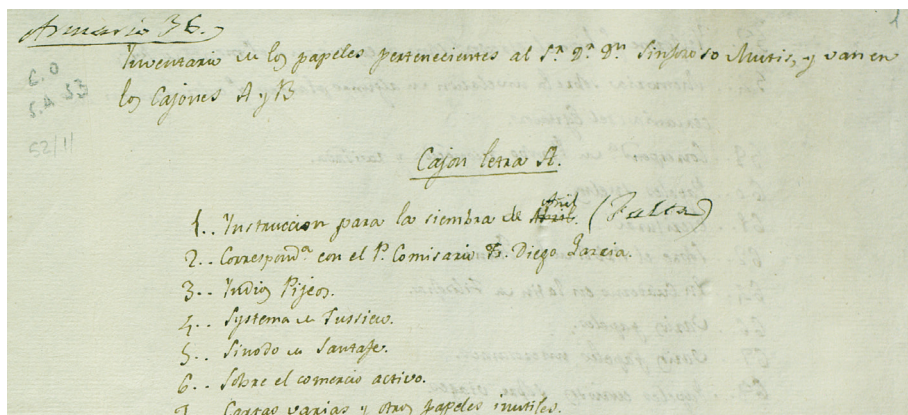 Armario 36.
1
Inventario de los papeles pertenecientes al Sr. Dr. Dn. Sinforoso Mutis, y van en
los Cajones A y B
52/11
Cajon letra A.
Añil
1.. Instruccion para la siembra de Abril. (Falta)
2.. Correspond.a con el P. Comisario Fr. Diego Garcia.
3.. Indios Pijeos.
4.. Systema de Jussieu.
5.. Sinodo de Santafe.
6.. Sobre el comercio activo.
7.. Cartas varias y otros papeles inutiles.